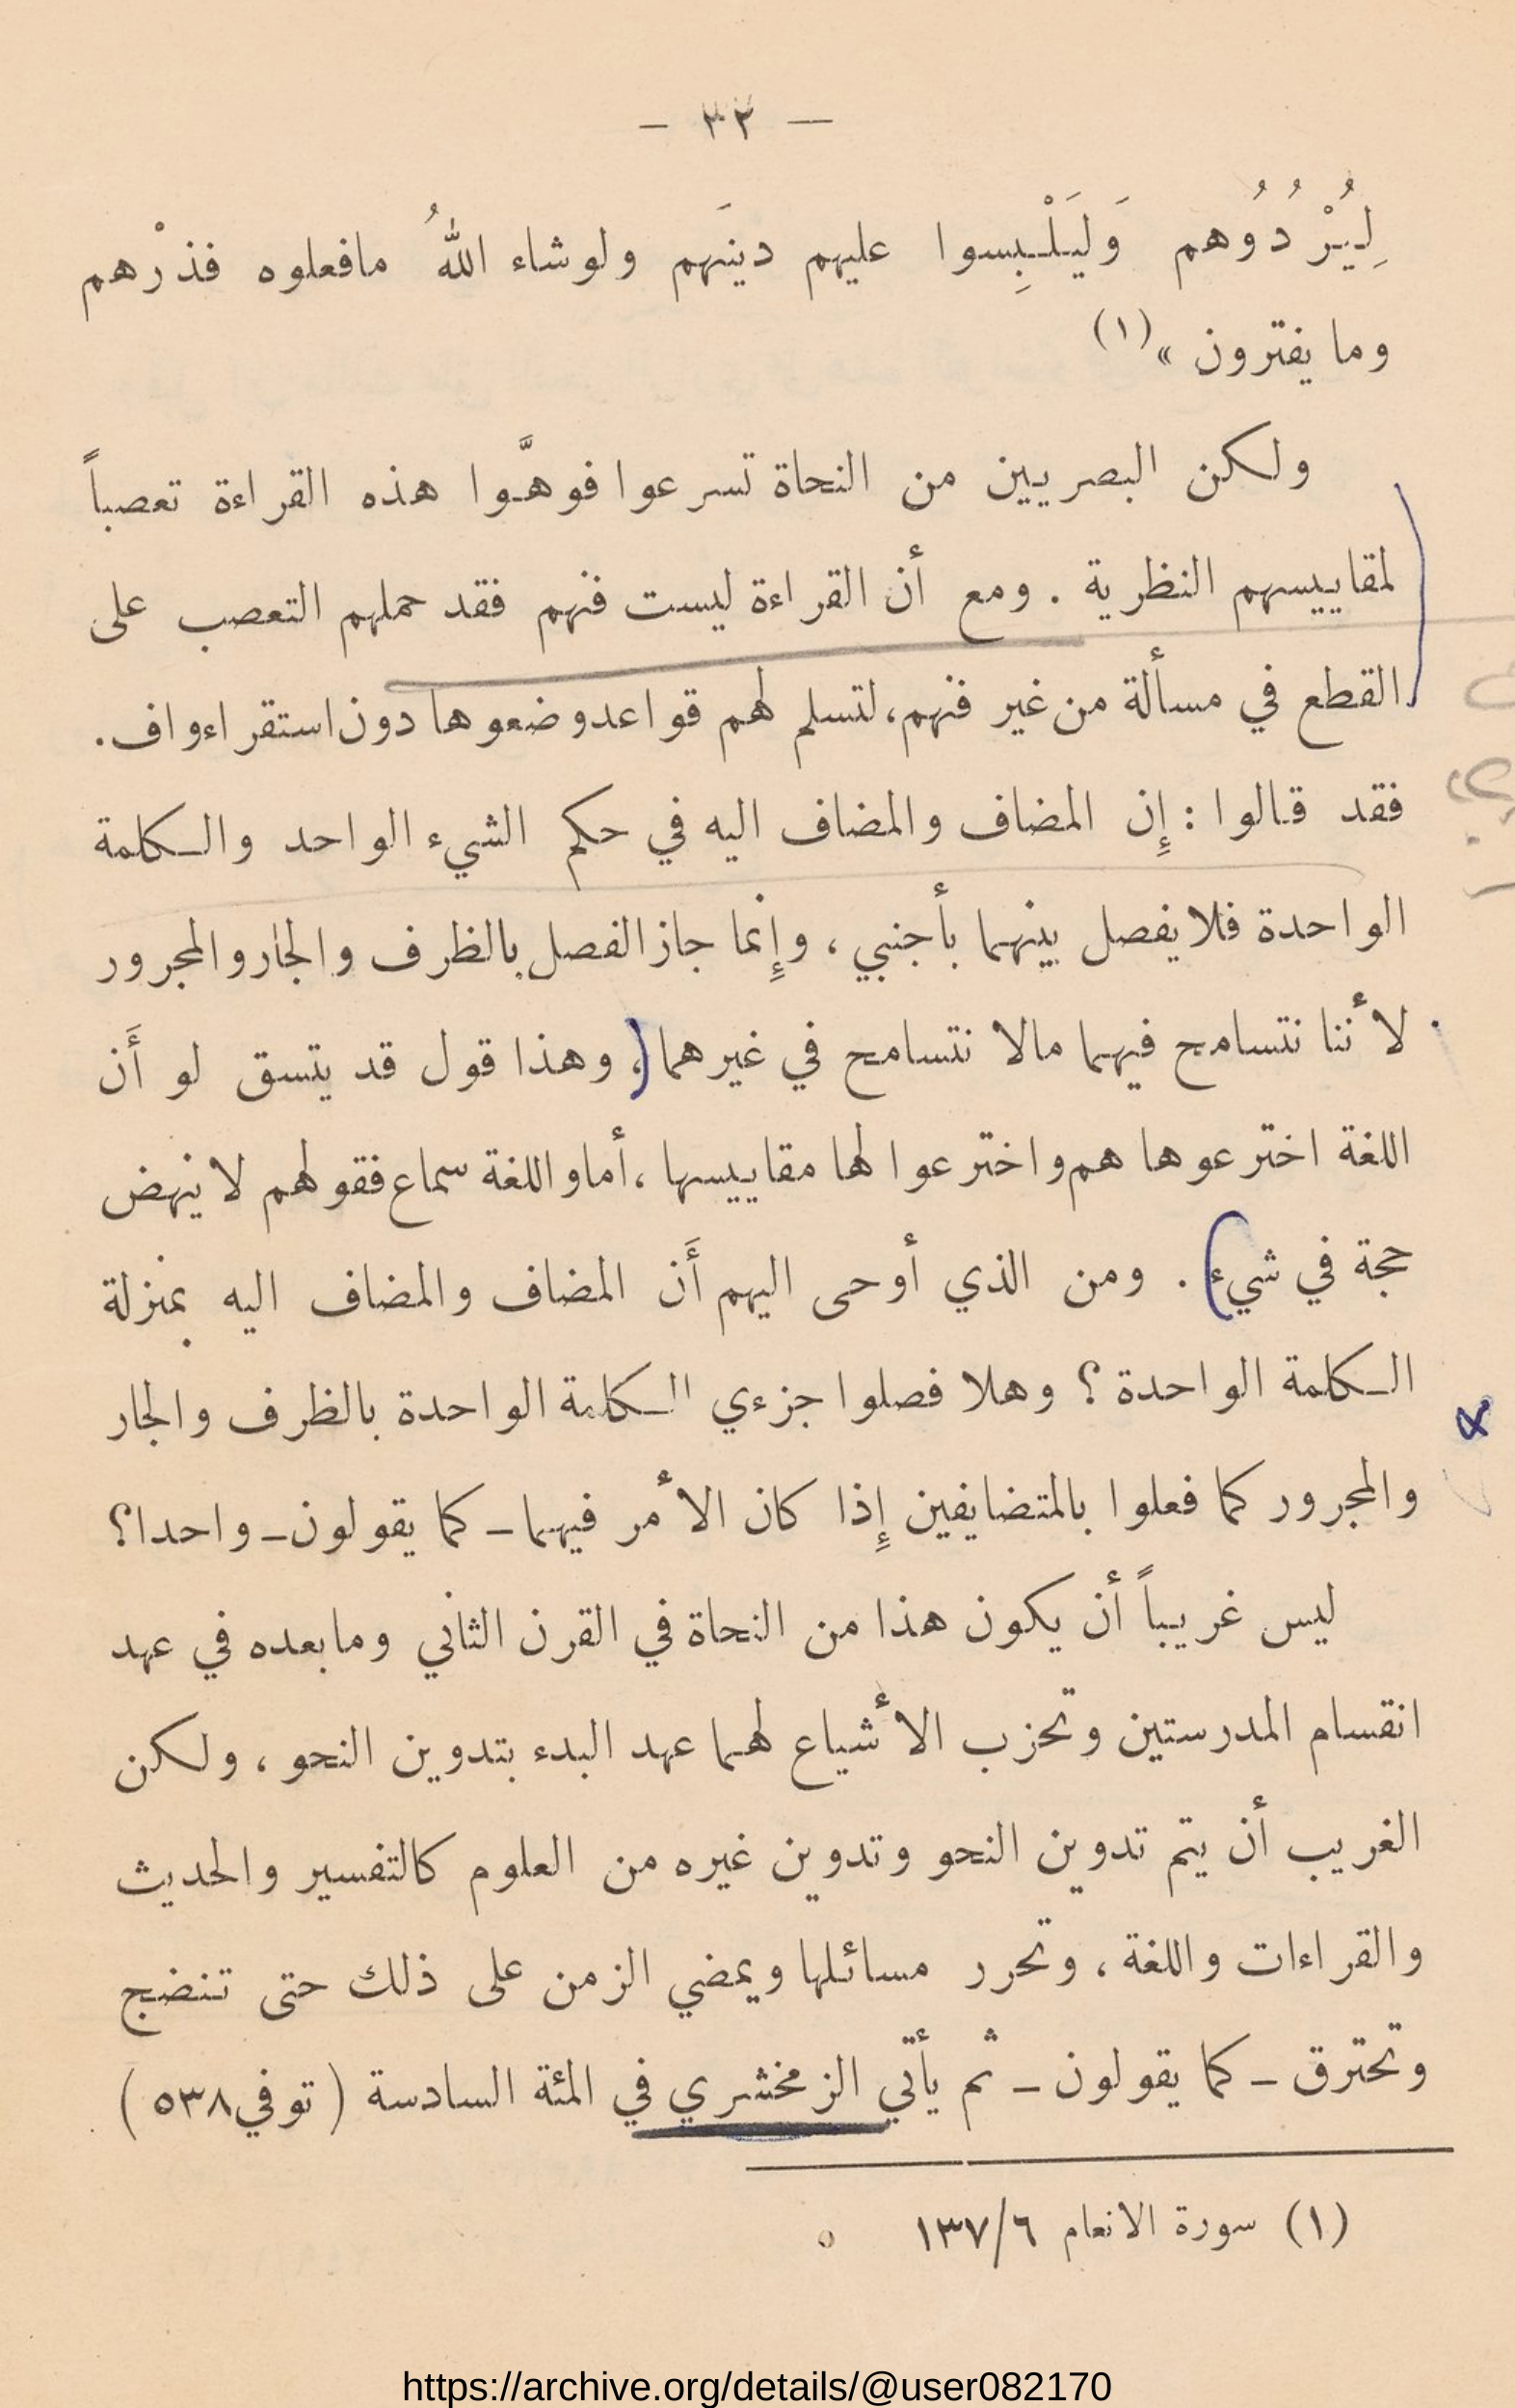 — ٣٣ —
لِيُرْدُوُهم وَليَلْبِسوا عليهم دينَهم ولوشاء اللهُ مافعلوه فذرْهم
وما يفترون » (١)
ولكن البصريين من النحاة تسرعوا فوهَّوا هذه القراءة تعصباً
لمقاييسهم النظرية . ومع أن القراءة ليست فنهم فقد حملهم التعصب على
القطع في مسألة من غير فنهم، لتسلم لهم قواعد وضعوها دون استقراء واف.
فقد قالوا : إِن المضاف والمضاف اليه في حكم الشيء الواحد والكلمة
الواحدة فلا يفصل بينهما بأجنبي ، وإِنما جاز الفصل بالظرف والجار والمجرور
لأننا نتسامح فيهما مالا نتسامح في غيرهما ، وهذا قول قد يتسق لو أَن
اللغة اخترعوها هم واخترعوا لها مقاييسها ، أما واللغة سماع فقولهم لا ينهض
حجة في شيء . ومن الذي أوحى اليهم أَن المضاف والمضاف اليه بمنزلة
الكلمة الواحدة ؟ وهلا فصلوا جزءي الكلمة الواحدة بالظرف والجار
والمجرور كما فعلوا بالمتضايفين إِذا كان الأمر فيهما ـ كما يقولون ـ واحدا؟
ليس غريباً أن يكون هذا من النحاة في القرن الثاني وما بعده في عهد
انقسام المدرستين وتحزب الأشياع لهما عهد البدء بتدوين النحو ، ولكن
الغريب أن يتم تدوين النحو وتدوين غيره من العلوم كالتفسير والحديث
والقراءات واللغة ، وتحرر مسائلها ويمضي الزمن على ذلك حتى تنضج
وتحترق ـ كما يقولون ـ ثم يأتي الزمخشري في المئة السادسة ( توفي ٥٣٨ )
(١) سورة الانعام ١٣٧/٦
https://archive.org/details/@user082170